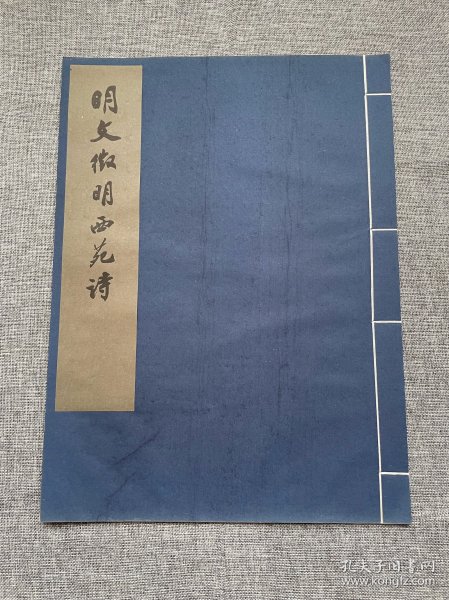 明文徵明西苑诗
孔夫子旧书网
www.kongfz.com